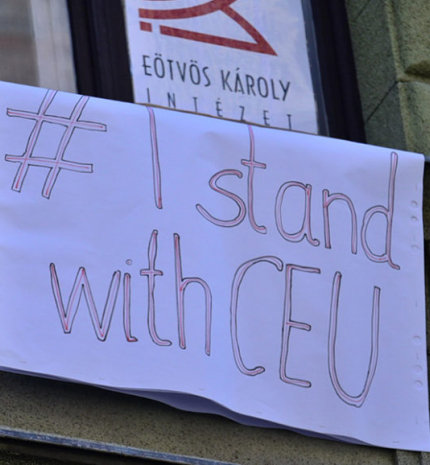 EÖTVÖS KÁROLY
INTÉZET
# I stand
with CEU